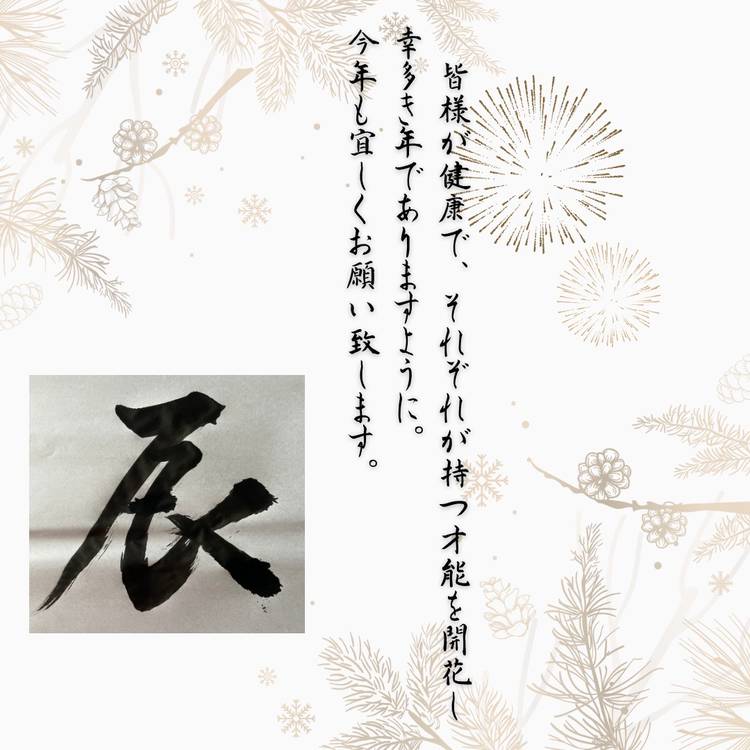 皆様が健康で、それぞれが持つ才能を開花し
幸多き年でありますように。
今年も宜しくお願い致します。
辰